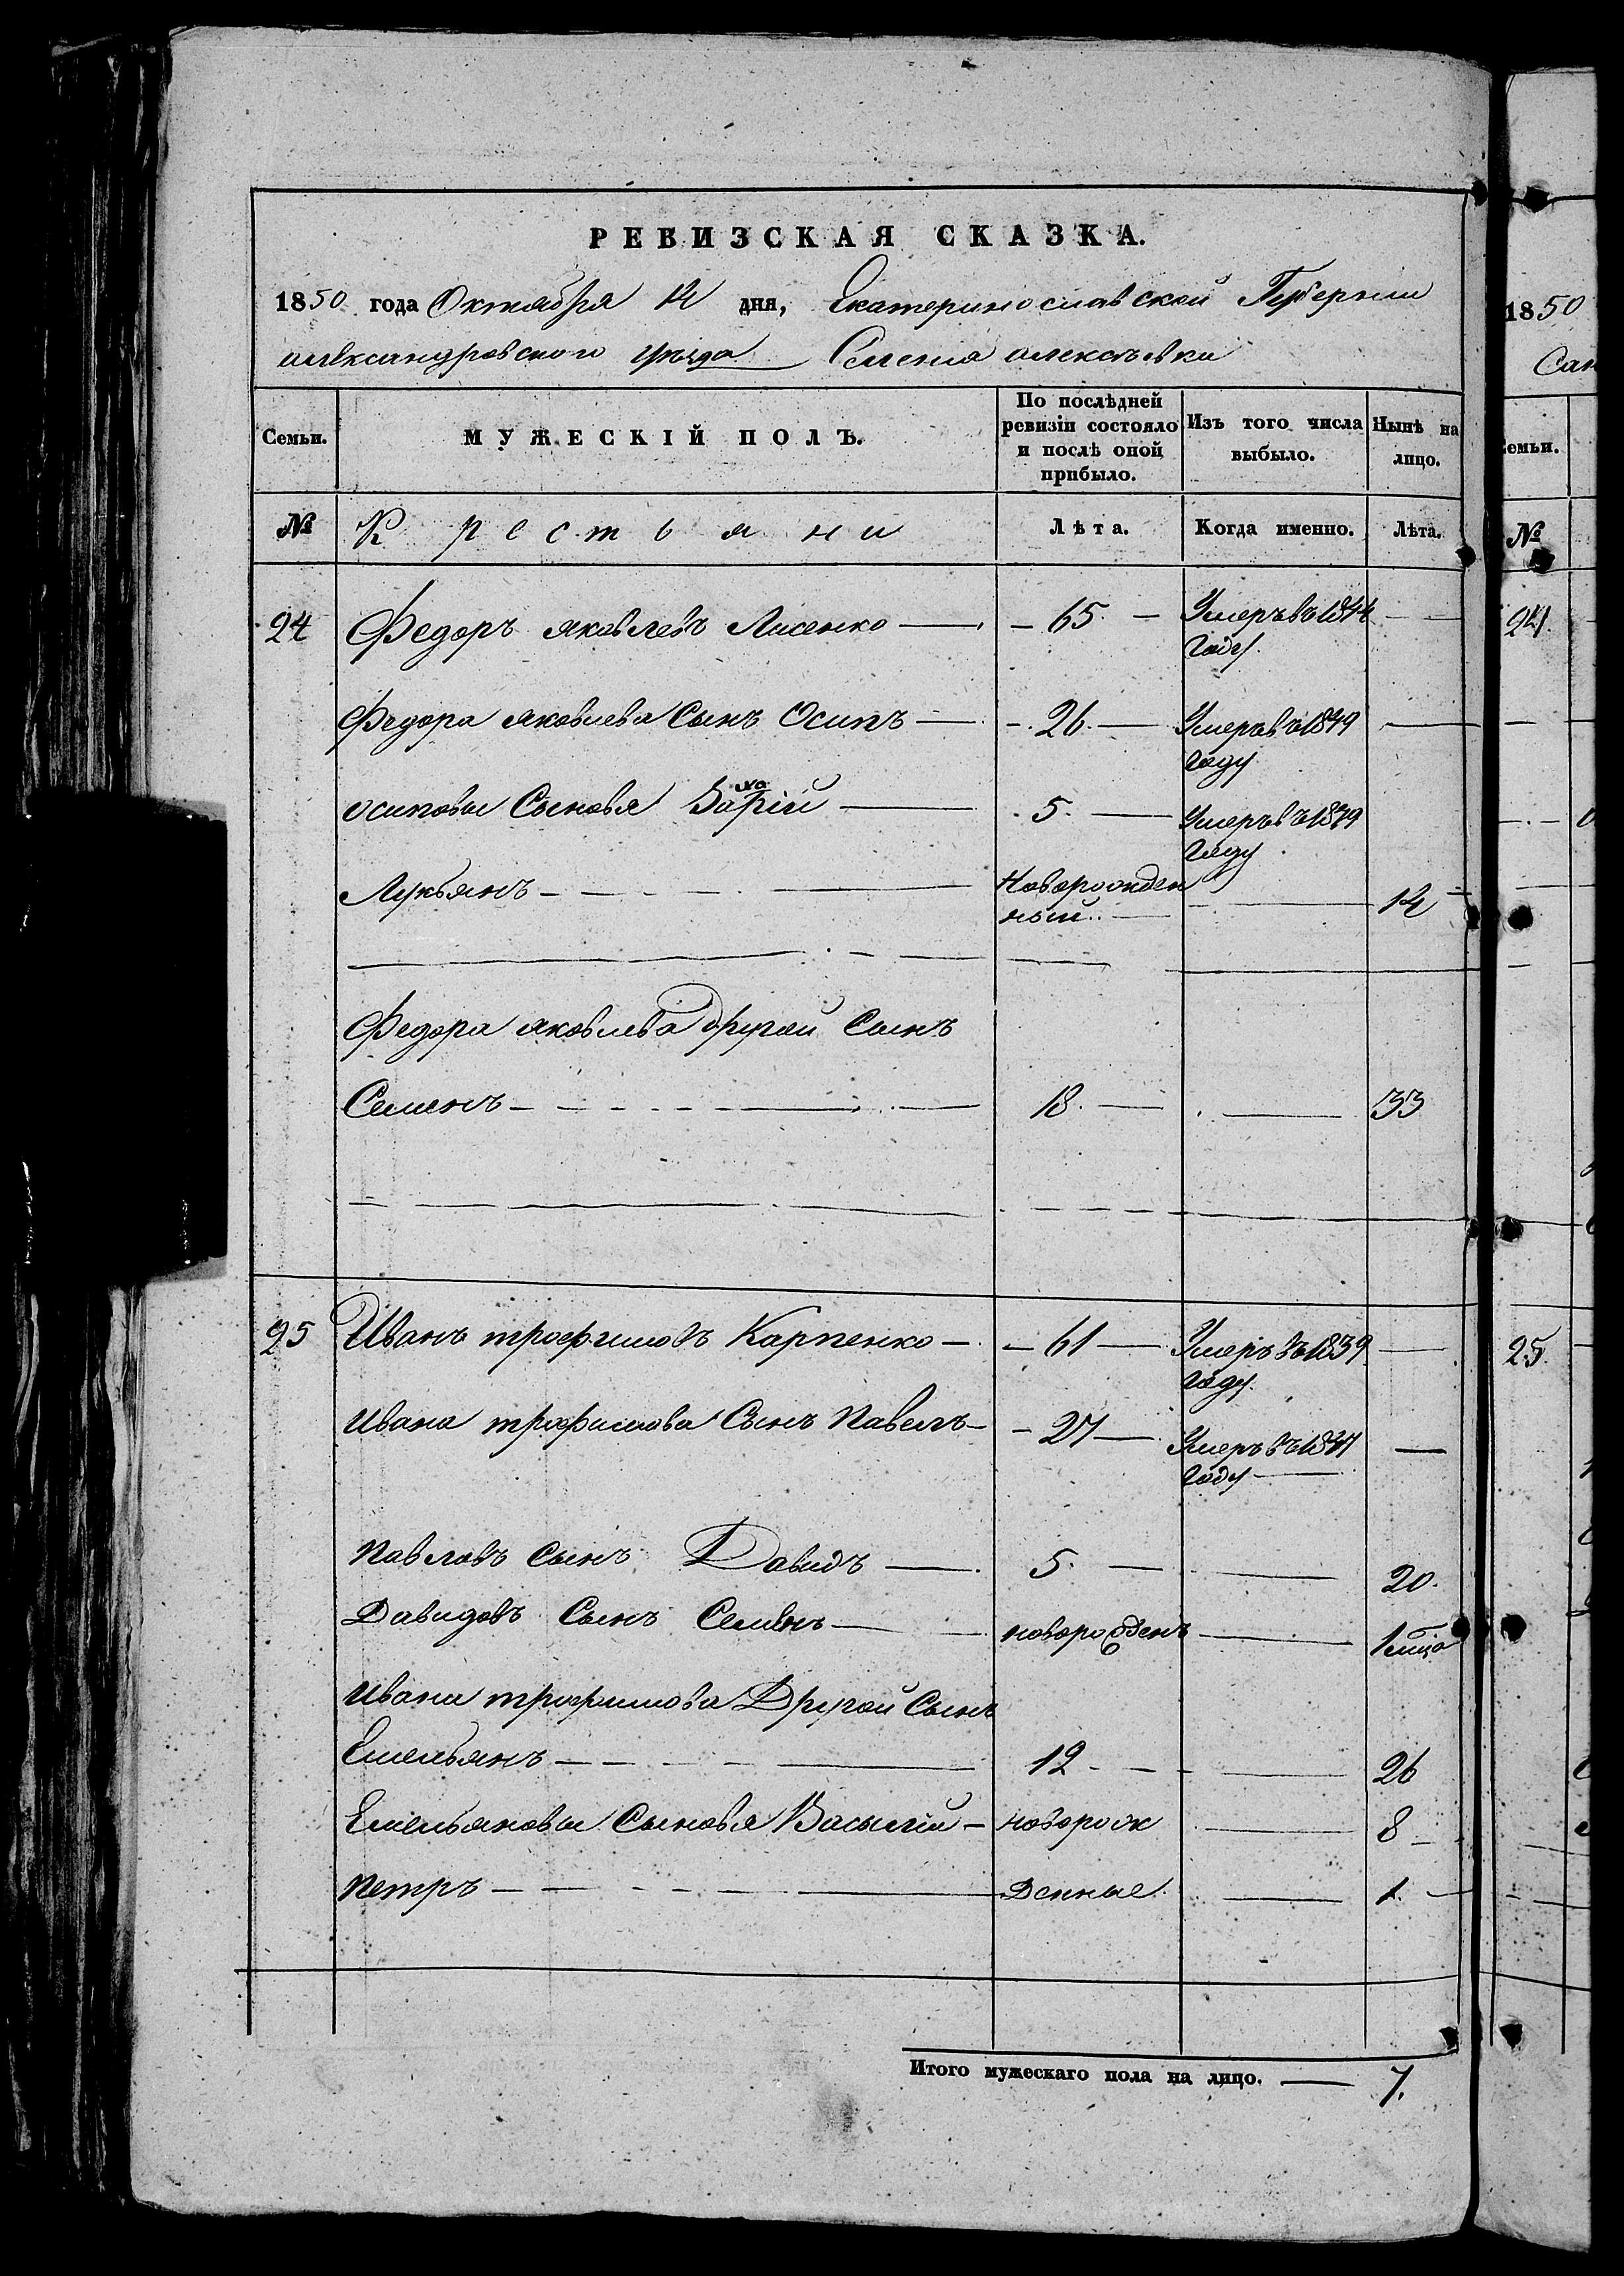 РЕВИЗСКАЯ СКАЗКА.
1850 года Октября 14 дня, Екатеринославской Губернии
александровского уезда Селения алексѣевки
Семьи. МУЖЕСКІЙ ПОЛЪ. По послѣдней ревизіи состояло и послѣ оной прибыло. Изъ того числа выбыло. Нынѣ на лицо.
№ Крестьяни Лѣта. Когда именно. Лѣта.
24 Федоръ яковлевъ Лисенко — 65 — Умеръ въ 1844 Году —
Федора яковлева Сынъ Осипъ — 26 — Умеръ въ 1849 году —
осиповы Сыновья Захарій — 5 — Умеръ въ 1849 году
Лукьянъ — Новорожден ный — 14
Федора яковлева другой Сынъ
Семенъ — 18 — 33
25 Иванъ трофимовъ Карпенко — 61 — Умеръ въ 1839 году —
Ивана трофимова Сынъ Павелъ — 27 — Умеръ въ 1847 году —
Павловъ сынъ Давидъ — 5 — 20.
Давидовъ Сынъ Семенъ — новорожденъ — 1 мца
Ивана трофимова Другой Сынъ
Емельянъ — 12 — 26
Емельяновы Сыновья Василій — новорож — 8
Петръ — денные — 1
Итого мужескаго пола на лицо. — 7.
1850
Сем
Семьи.
№
24.
25.